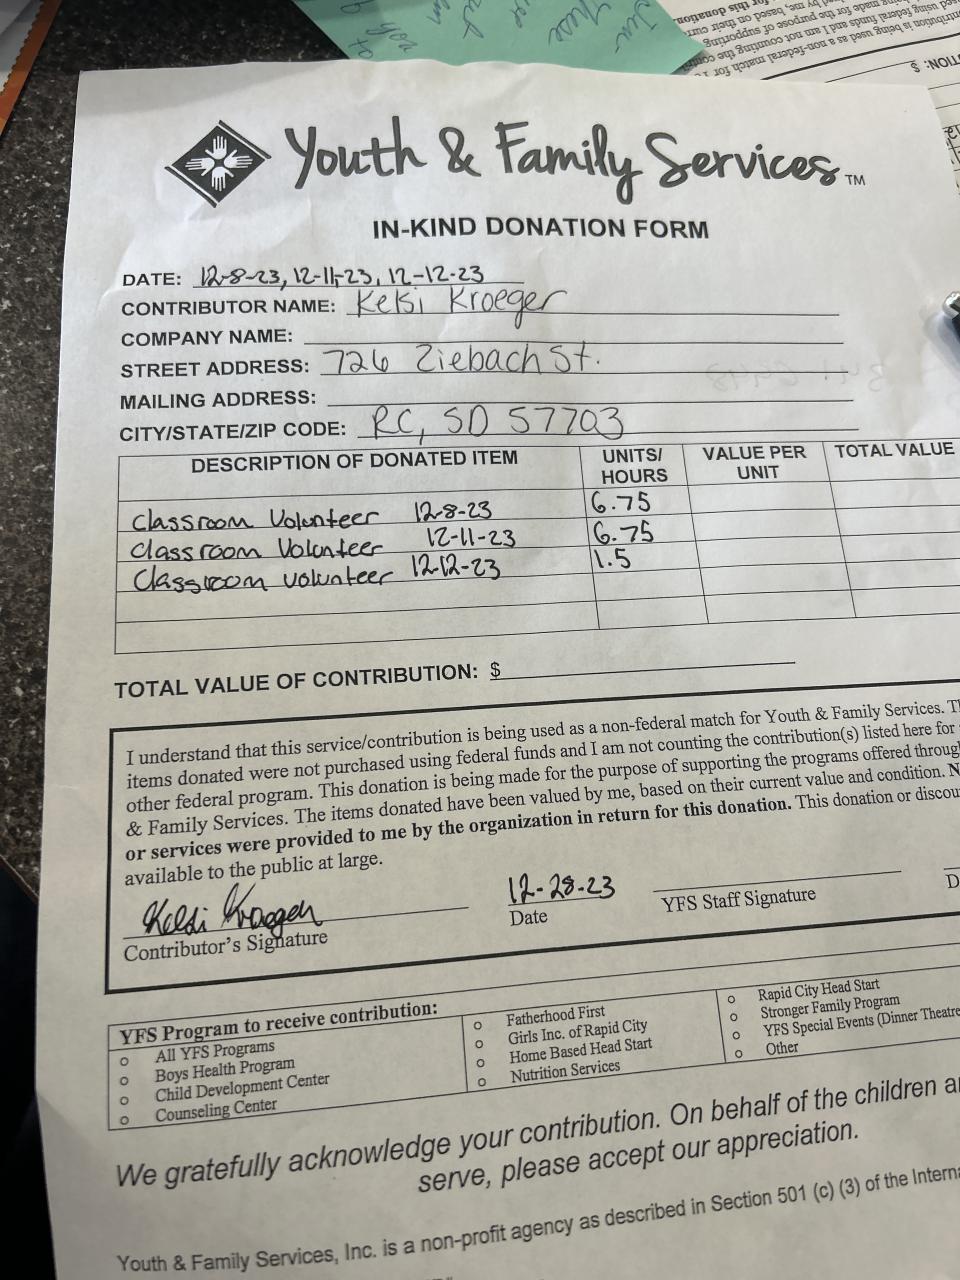 Youth & Family Services TM
IN-KIND DONATION FORM
DATE: 12-8-23, 12-11-23, 12-12-23
CONTRIBUTOR NAME: Kelsi Kroeger
COMPANY NAME:
STREET ADDRESS: 726 Ziebach St.
MAILING ADDRESS:
CITY/STATE/ZIP CODE: RC, SD 57703
DESCRIPTION OF DONATED ITEM UNITS/ HOURS VALUE PER UNIT TOTAL VALUE
Classroom Volunteer 12-8-23 6.75
Classroom Volunteer 12-11-23 6.75
Classroom volunteer 12-12-23 1.5
TOTAL VALUE OF CONTRIBUTION: $
I understand that this service/contribution is being used as a non-federal match for Youth & Family Services.
items donated were not purchased using federal funds and I am not counting the contribution(s) listed here for
other federal program. This donation is being made for the purpose of supporting the programs offered through
& Family Services. The items donated have been valued by me, based on their current value and condition.
or services were provided to me by the organization in return for this donation. This donation or
available to the public at large.
Kelsi Kroeger 12-28-23
Contributor's Signature Date YFS Staff Signature
YFS Program to receive contribution:
All YFS Programs
Boys Health Program
Child Development Center
Counseling Center
Fatherhood First
Girls Inc. of Rapid City
Home Based Head Start
Nutrition Services
Rapid City Head Start
Stronger Family Program
YFS Special Events (Dinner Theatre
Other
We gratefully acknowledge your contribution. On behalf of the children
serve, please accept our appreciation.
Youth & Family Services, Inc. is a non-profit agency as described in Section 501 (c) (3) of the